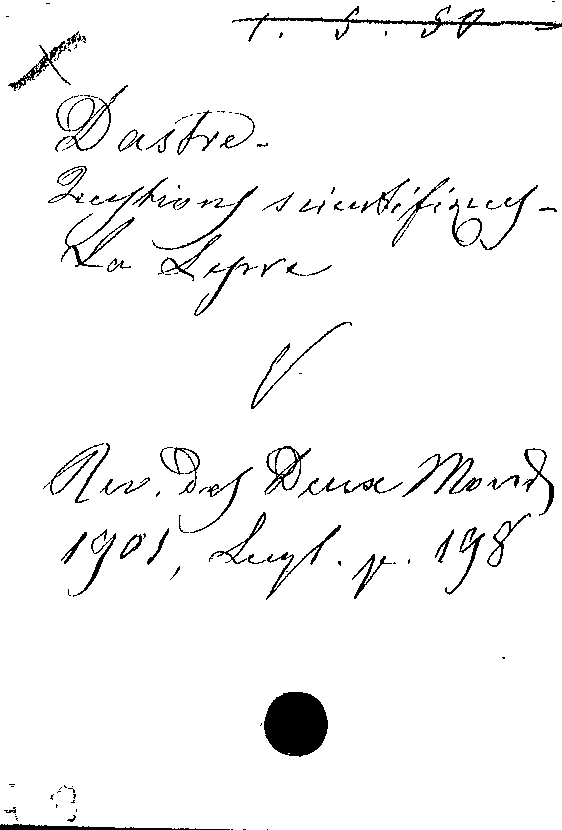 1. 5. 50
Dastre.
Questions scientifiques -
La Lepre
V.
Rev. des Deux Mond
1901, Sept. p. 198